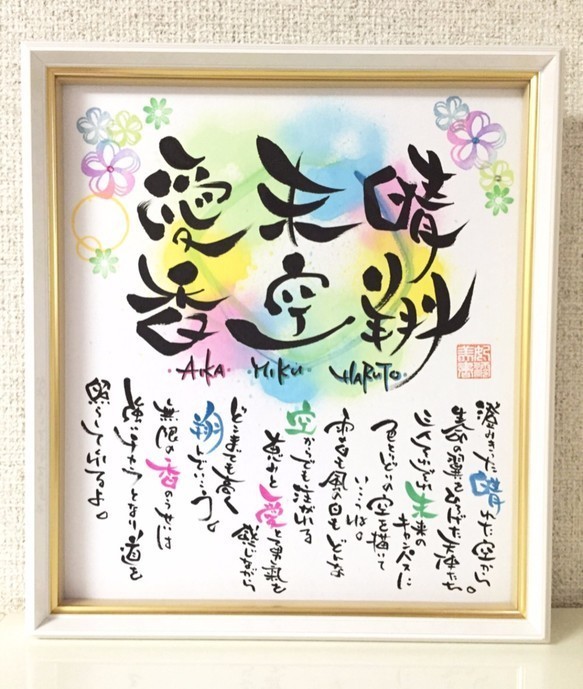 晴翔
未空
愛香
AIKA MIKU HARUTO
澄みきった晴れた空から
の翼を広げた天使たち。
未来の
キャンバスに
色とりどりの空を描いて
いこうね。
も風の日もどんな
空からでも注がれる
恵みと愛と勇気を
感じながら
どこまでも高く
翔んでいこう。
無限の香の
となり道を
照らしてくれるよ。